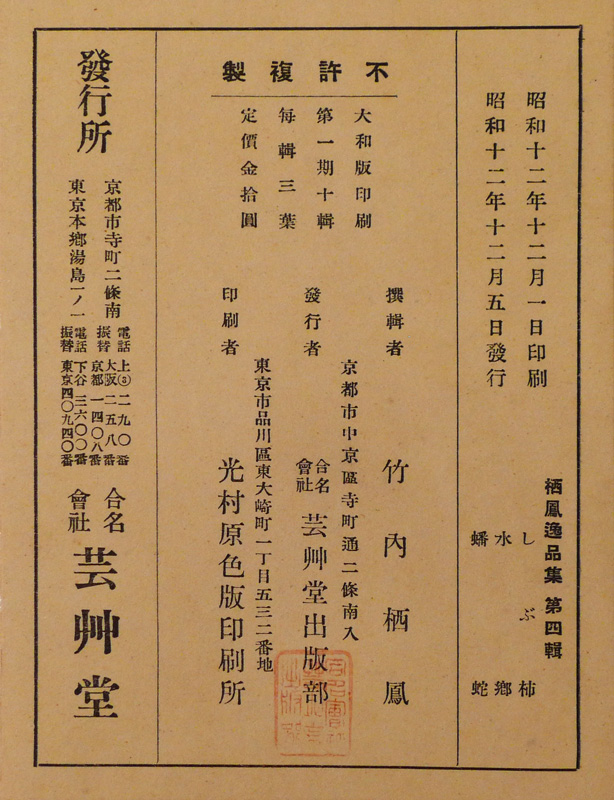 昭和十二年十二月一日印刷
昭和十二年十二月五日發行
栖鳳逸品集 第四輯
しぶ柿
水鄉
蟠蛇
不許複製
大和版印刷
第一期十輯
每輯三葉
定價金拾圓
撰輯者 竹內栖鳳
京都市中京區寺町通二條南入
發行者 合名會社 芸艸堂出版部
東京市品川區東大崎町一丁目五三二番地
印刷者 光村原色版印刷所
發行所
京都市寺町二條南
電話上 二九〇番
振替大阪 二五八番
京都 一四〇八番
東京本鄉湯島一ノ一
電話下谷 三六〇〇番
振替東京四〇九四〇番
合名會社 芸艸堂